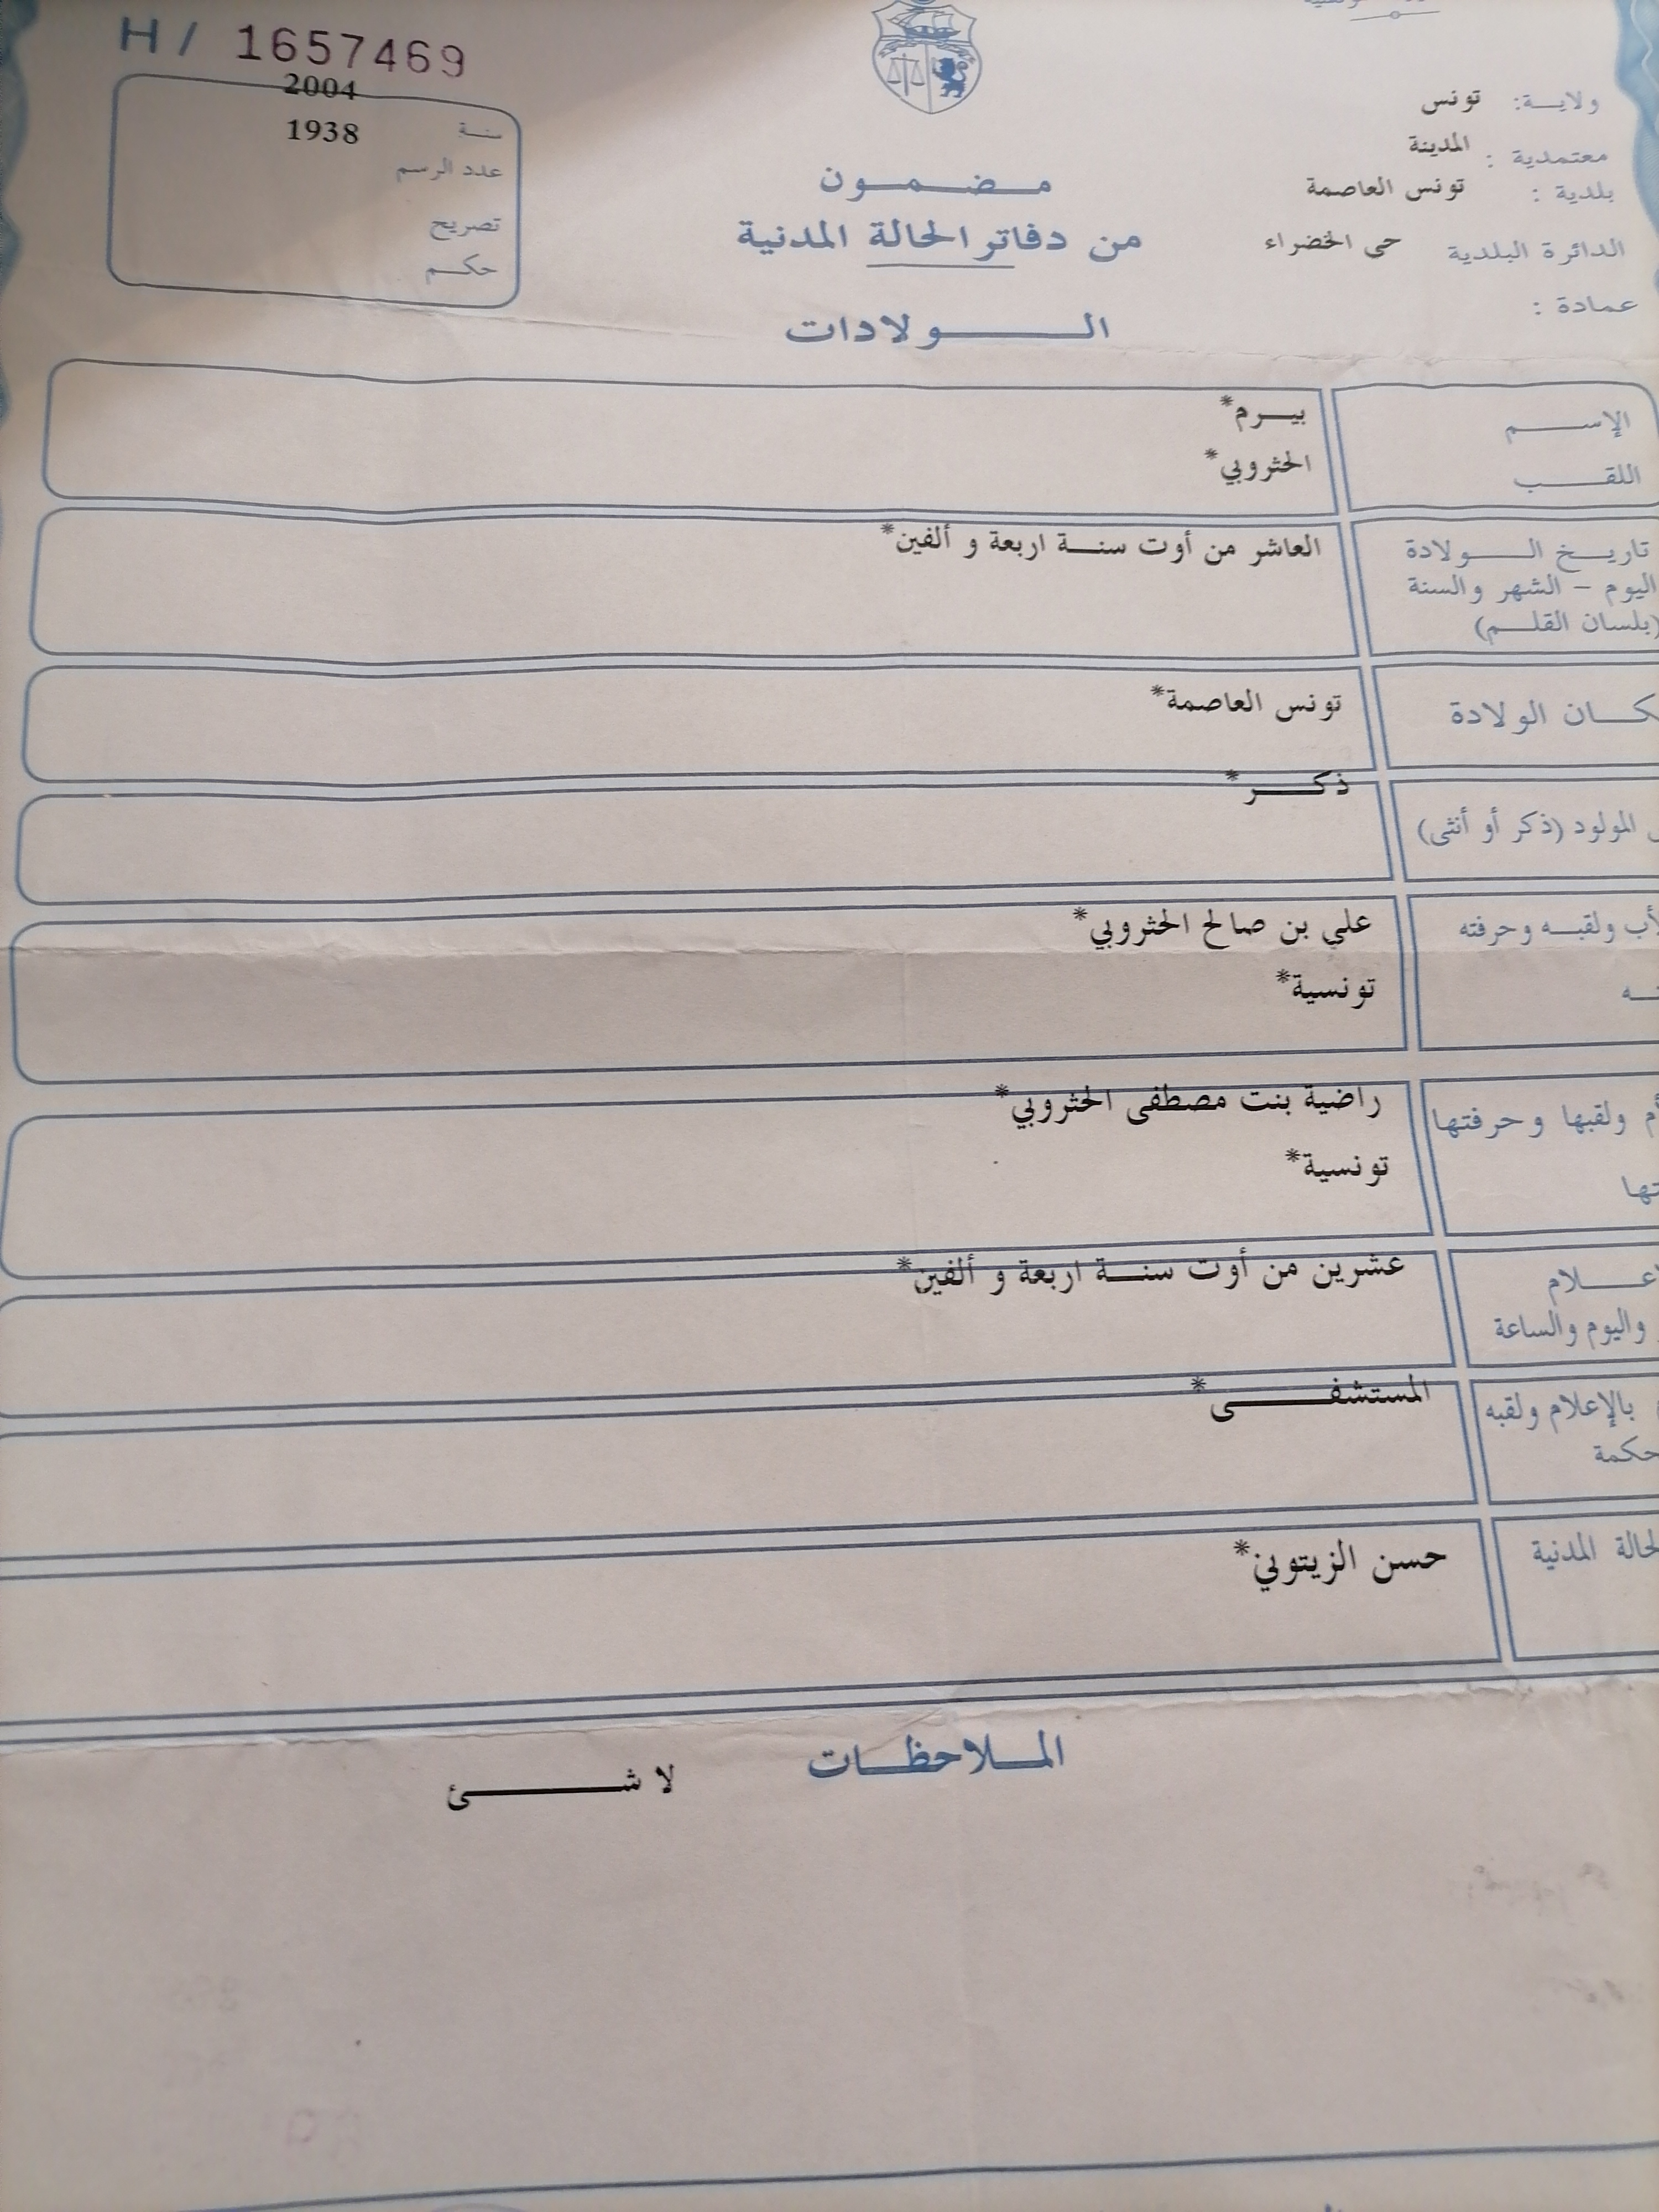 H / 1657469
2004
سنة
1938
عدد الرسم
تصريح
حكم
ولاية: تونس
معتمدية : المدينة
بلدية : تونس العاصمة
الدائرة البلدية حى الخضراء
عمادة :
مضمون
من دفاتر الحالة المدنية
الولادات
الإسم بيرم*
اللقب الحثروبي*
تاريخ الولادة العاشر من أوت سنة اربعة و ألفين*
اليوم - الشهر والسنة
(بلسان القلم)
كان الولادة تونس العاصمة*
ذكر*
المولود (ذكر أو أنثى)
أب ولقبه وحرفته علي بن صالح الحثروبي*
تونسية*
أم ولقبها وحرفتها راضية بنت مصطفى الحثروبي*
تها تونسية*
علام عشرين من أوت سنة اربعة و ألفين*
واليوم والساعة
بالإعلام ولقبه المستشفى*
حكمة
لحالة المدنية حسن الزيتوني*
الملاحظات
لا شئ